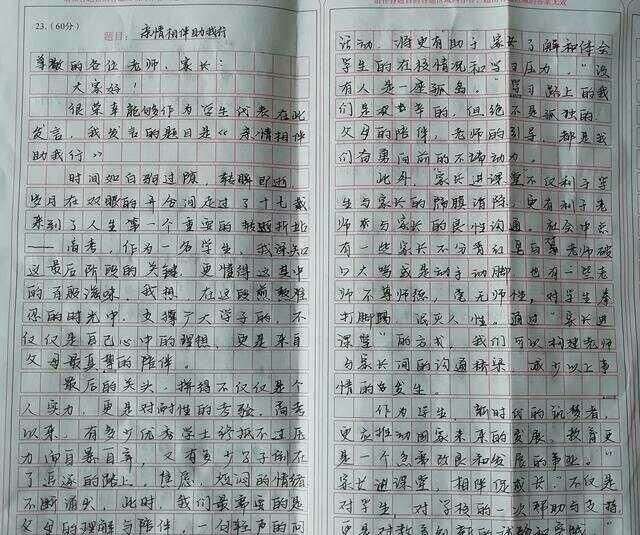 23.(60分)
题目: 亲情相伴助我行
尊敬的各位老师、家长:
大家好!
很荣幸能够作为学生代表在此
发言,我发言的题目是《亲情相伴
助我行》
时间如白驹过隙,转瞬即逝,
岁月在双眼的开合间走过了十七载
来到了人生第一个重要的转折
——高考,作为一名学生,我深知
这最后阶段的关键,更懂得这其中
的百般滋味,我想,在这段煎熬难
忍的时光中,支撑了大学子的,不
仅仅是自己心中的理想,更是来自
父母最真挚的陪伴。
最后的关头,拼得不仅仅是个
人实力,更是对耐性的考验,高考
以来,有多少优秀学士终抵不过压
力而自暴自弃,又有多少了子倒在
了追逐的路上,焦虑、烦闷的情绪
不断涌头,此时,我们最需要的是
父母的理解与陪伴,一句轻声的问
活动,将更有助于家长了解和体会
学生的在校情况和学习压力,"没
有人是一座孤岛。"学习路上的我
们是艰辛的,但绝不是孤独的,
父母的陪伴,老师的引导,都是我
们奋勇向前的不竭动力。
此外,家长进课堂不仅利于学
生与家长的隔膜消除,更有利于老
师本与家长的良性沟通,社会中总
有一些家长不分青红皂白 老师破
口大骂或是动手动脚,也有一些老
师不尊师德,毫无师性,对学生拳
打脚踢,泯灭人性。通过"家长进
课堂"的方式,我们可以构建老师
与家长间的沟通桥梁,减少以上事
情的发生。
作为学生,新时代的追梦者,
更应推动国家未来的发展,教育更
是一个急需改良和发展的事业。"
家长进课堂,相伴促成长"不仅是
对学生,对学校的一次帮助与支持,
更是对教育创新的试验和实践